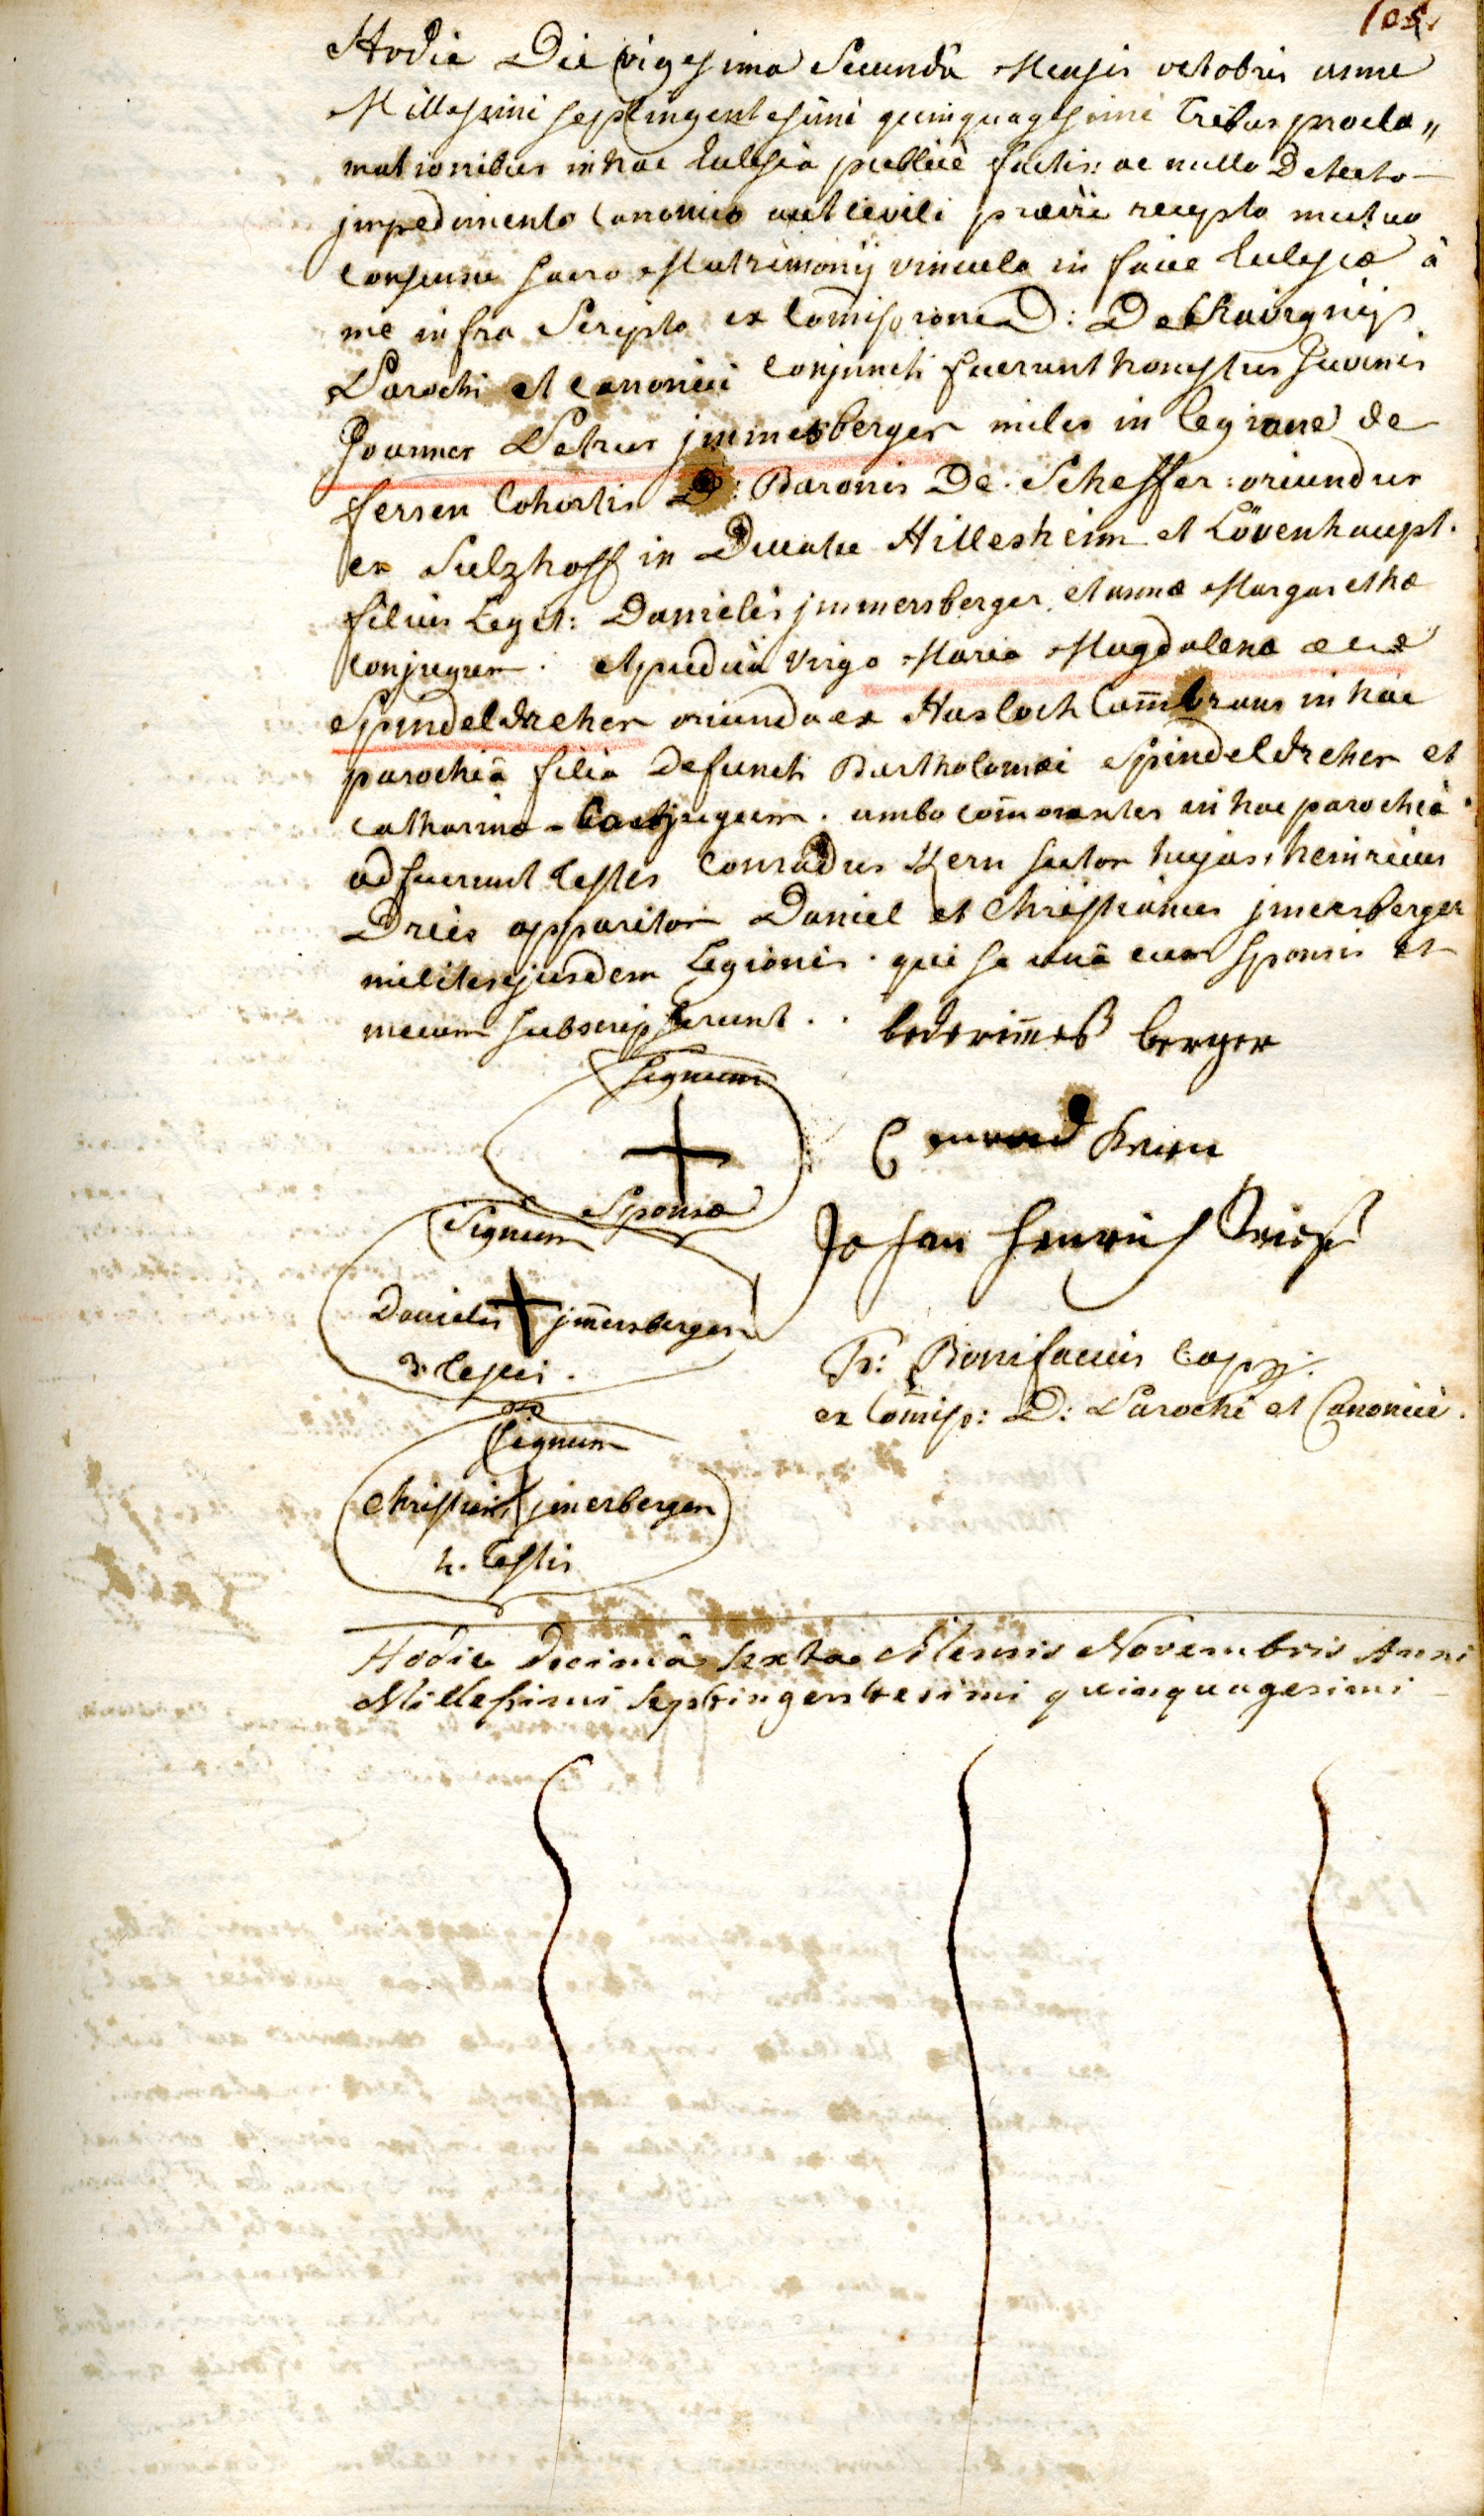 105
Hodie Die vigesima Secundâ Mensis octobris anni
Millesimi septingentesimi quinquagesimi tribus procla„
mationibus in hac Eclesiâ publicè factis: ac nullo Detecto
jmpedimento Canonico aut civili prævie recepto mutuo
consensu sacro Matrimonÿ vinculo in facie Eclesiæ à
me infra Scripto ex Comissione D:
Parochi et canonici conjuncti fuerunt honestus Juvenis
Joannes Petrus jmmesberger miles in legione de
fersen Cohortis D: Baronis De Scheffer: oriundus
ex Sulzhoff in Ducatu Hillesheim et Lövenhaupt.
filius Legit: Danielis jmmersberger et annæ Margarethæ
conjugum. et pudica virgo Maria Magdalena
Spindeldreher oriunda ex Hasloch in hac
parochiâ filia Defuncti Bartholomæi Spindeldreher et
catharinæ conjugum. ambo comorantes in hac parochiâ
adfuerunt testes Conradus Kern sutor hujas, heinricus
Dries apparitor Daniel et Christianus jmersberger
milites ejusdem Legionis. qui se unâ cum sponsis et
mecum subscripserunt..
bedter im̅es berger
Signum
+
Sponsæ
Conrad Kern
Signum
Danielis + jm̅ersberger
3. testis.
Johan Henrich Driess
Fr: Bonifacius Cap:
ex Com̅iss: D: Parochi et Canonici.
Signum
Christiani + jmerberger
4. testis
Hodie Decimâ sexta Mensis Novembris Anni
Millesimi septingentesimi quinquagesimi